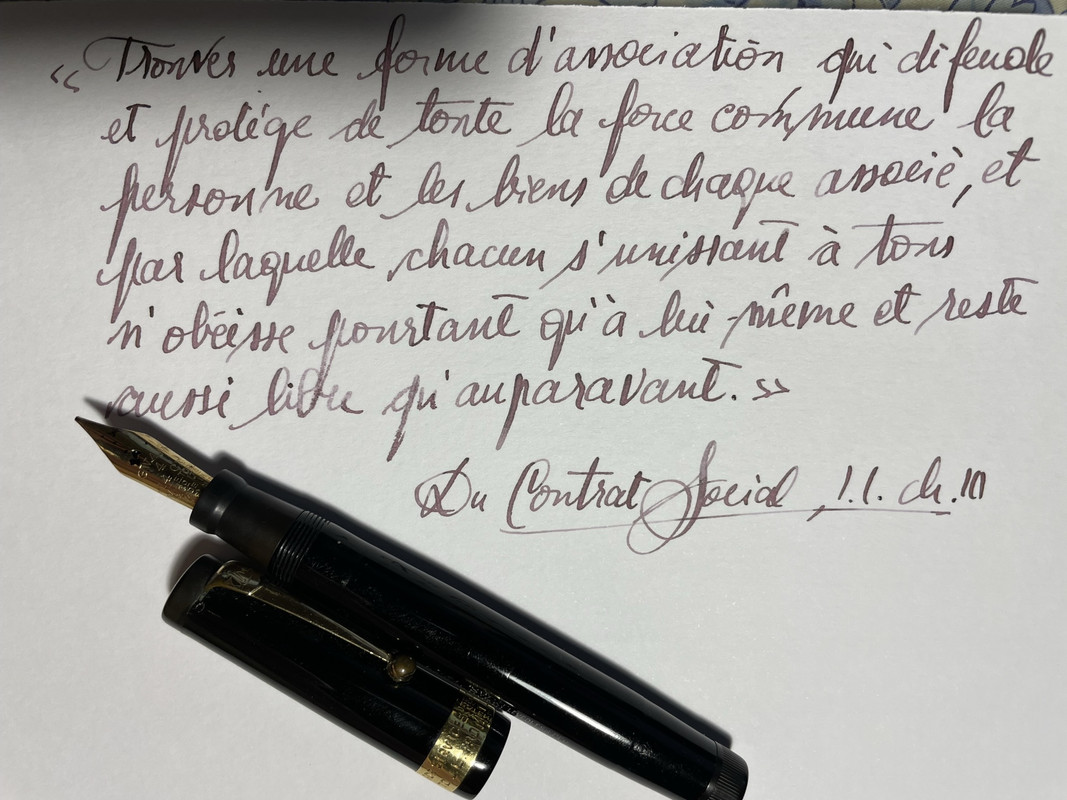 « Trouver une forme d'association qui défende
et protége de toute la force commune la
personne et les biens de chaque associé, et
par laquelle chacun s'unissant à tous
n'obéisse pourtant qu'à lui-même et reste
aussi libre qu'auparavant. »
Du Contrat Social, l.I. ch.